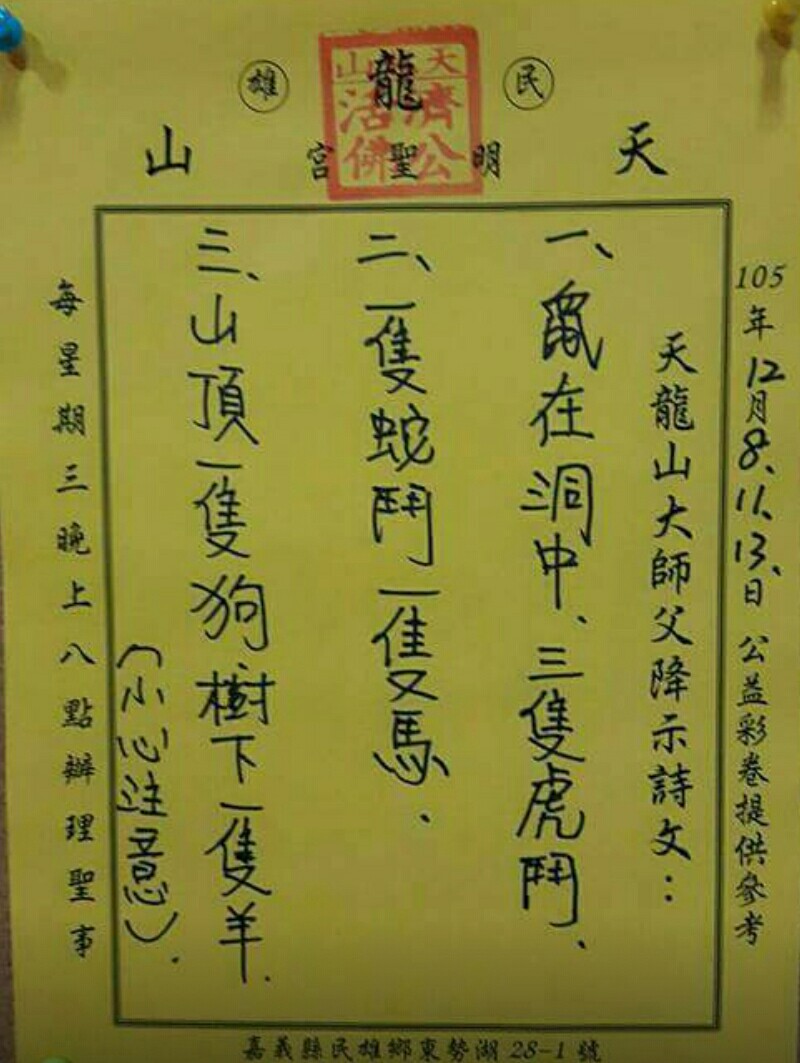 民雄
天龍山
明聖宮
天龍山
濟公
活佛
105年12月8、11、13、日 公益彩卷提供參考
天龍山大師父降示詩文：
一、鼠在洞中、三隻虎鬥、
二、一隻蛇鬥一隻馬、
三、山頂一隻狗樹下一隻羊.
（小心注意）.
每星期三晚上八點辦理聖事
嘉義縣民雄鄉東勢湖28-1號